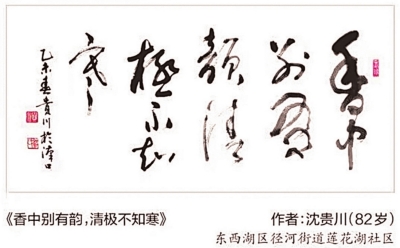 香中
别有
韻清
極不知
寒
乙未春貴川於漢口
《香中别有韵,清极不知寒》
作者:沈贵川(82岁)
东西湖区径河街道莲花湖社区